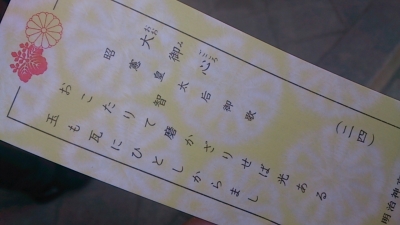 大御心
おおみごころ
(二四)
昭憲皇太后御歌
智
おこたりて磨かざりせば光ある
玉も瓦にひとしからまし
明治神